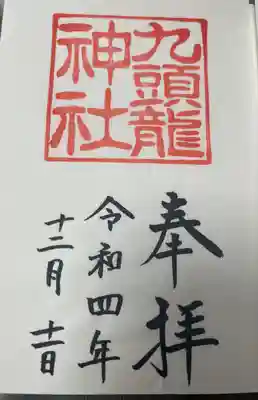 九頭龍
神社
奉拝
令和四年
十二月 十一日